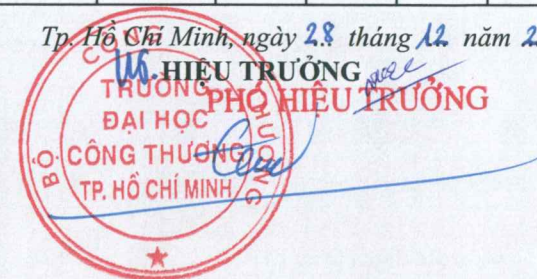 Tp. Hồ Chí Minh, ngày 28 tháng 12 năm 2
KT. HIỆU TRƯỞNG
PHÓ HIỆU TRƯỞNG
BỘ CÔNG THƯƠNG
TRƯỜNG
ĐẠI HỌC
CÔNG THƯƠNG
TP. HỒ CHÍ MINH